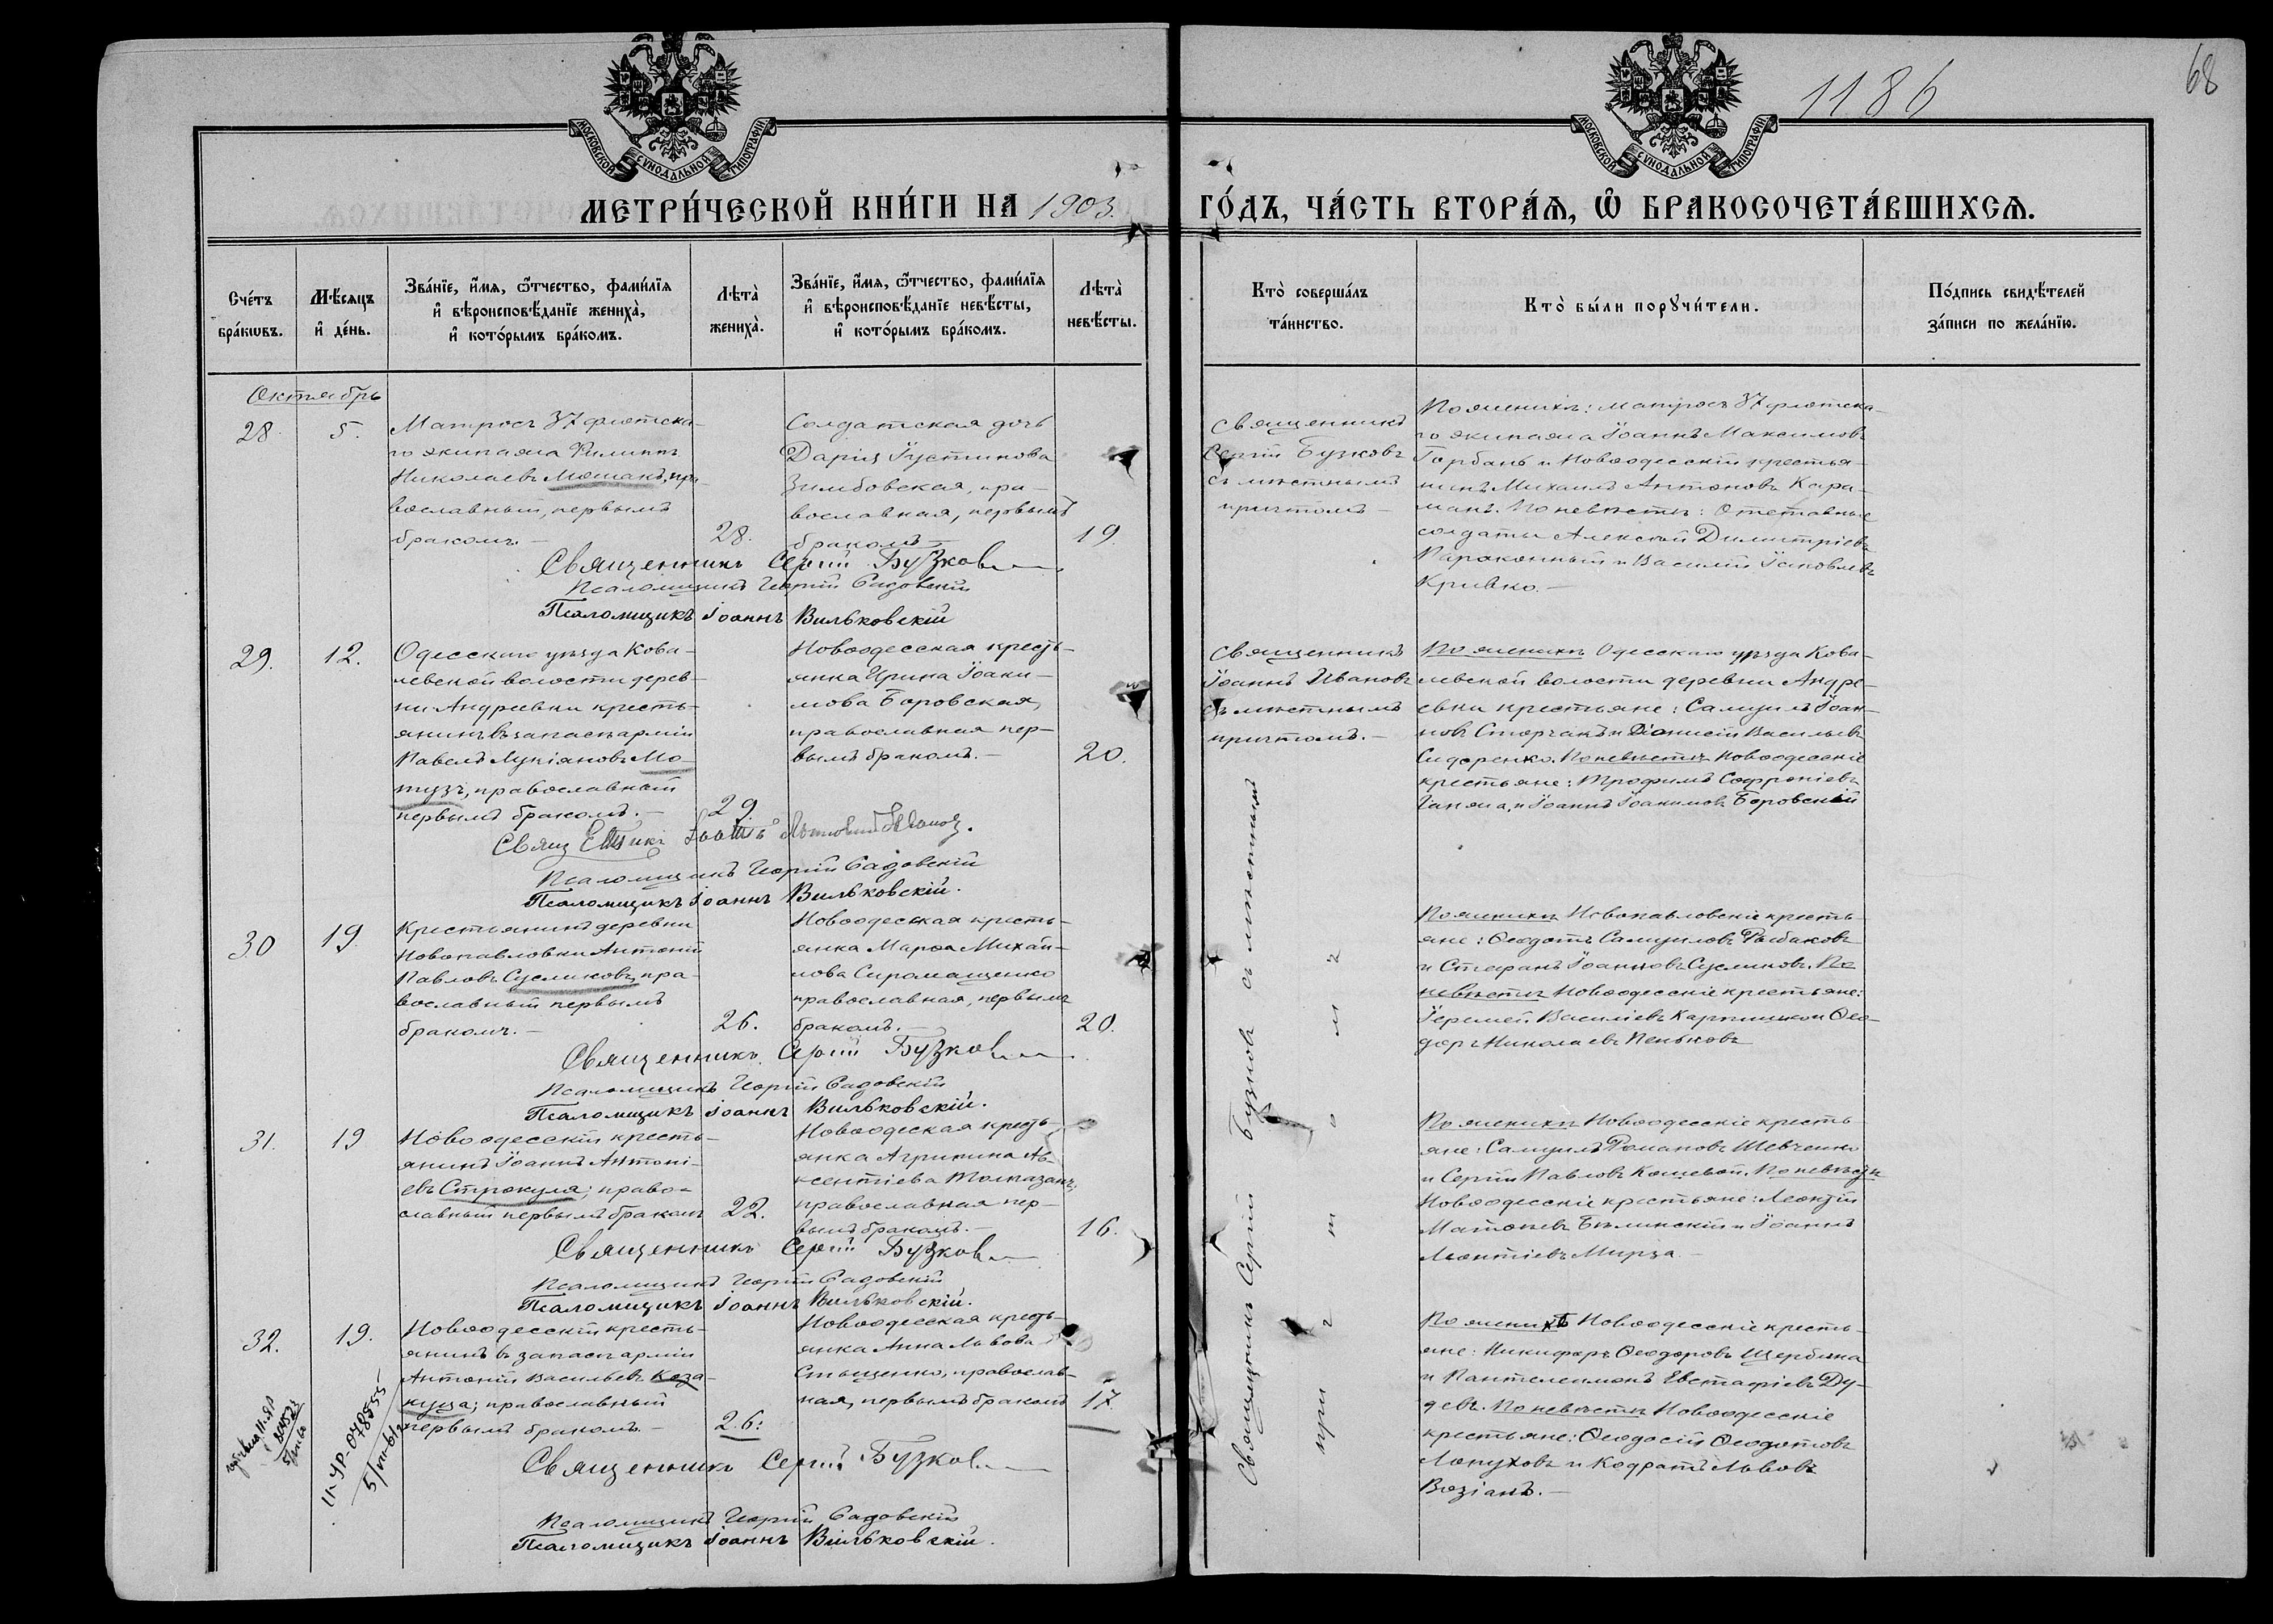 1186
68
МОСКОВСКОЙ СѴНОДАЛЬНОЙ ТИПОГРАФІИ
МОСКОВСКОЙ СѴНОДАЛЬНОЙ ТИПОГРАФІИ
МЕТРИ́ЧЕСКОЙ КНИ́ГИ НА 1903.
ГО́ДЪ, ЧА́СТЬ ВТОРА́Ѧ, Ѽ БРАКОСОЧЕТА́ВШИХСѦ.
Сче́тъ бра́кѡвъ.
Мѣ́сяцъ и҆ де́нь.
Зва́нїе, и҆́мѧ, ѻ҆́тчество, фами́лїѧ
и҆ вѣроисповѣ́данїе жениха̀,
и҆ кото́рымъ бра́комъ.
Лѣта̀ жениха̀.
Зва́нїе, и҆́мѧ, ѻ҆́тчество, фами́лїѧ
и҆ вѣроисповѣ́данїе невѣ́сты,
и҆ кото́рымъ бра́комъ.
Лѣта̀ невѣ́сты.
Кто̀ соверша́лъ
та́инство.
Кто̀ бы́ли порꙋчи́тели.
По́дпись свидѣ́телей
за́писи по жела́нїю.
Октябрь
28
5.
Матросъ 37 флотска-
го экипажа Филиппъ
Николаевъ Мошакъ, пра-
вославный, первымъ
бракомъ.—
28.
Солдатская дочь
Дарія Іустинова
Зимбовская, пра-
вославная, первымъ
бракомъ—
19
Священникъ
Сергій Бузковъ
съ мѣстнымъ
причтомъ—
По женихѣ: матросъ 37 флотска-
го экипажа Іоаннъ Максимовъ
Горбань и Новоодесскій крестья-
нинъ Михаилъ Антоновъ Кара-
манъ. По невѣстѣ: Отставные
солдаты Алексѣй Димитріевъ
и Василій Іаковлевъ
Кривко.—
Священникъ Сергій Бузковъ
Псаломщикъ Георгій Садовскій
Псаломщикъ Іоаннъ Вильковскій
29.
12.
Одесскаго уѣзда Кова-
левской волости дерев-
ни Андреевки кресть-
янинъ въ запасѣ арміи
Павелъ Лукіановъ Мо-
тузъ, православный
первымъ бракомъ.—
29.
Новоодесская кресть-
янка Ирина Іоаки-
мова Боровская,
православная пер-
вымъ бракомъ.—
20.
Священникъ
Іоаннъ Ивановъ
съ мѣстнымъ
причтомъ.—
По женихѣ Одесскаго уѣзда Кова-
левской волости деревни Андре-
евки крестьяне: Самуилъ Іоан-
новъ и Діонисій Васильевъ
Сидоренко. По невѣстѣ Новоодесскіе
крестьяне: Трофимъ Софроніевъ
и Іоаннъ Іоакимовъ Боровскій
Псаломщикъ Георгій Садовскій
Псаломщикъ Іоаннъ Вильковскій.
30
19
Крестьянинъ деревни
Новопавловки Антоній
Павловъ Сусликовъ, пра-
вославный первымъ
бракомъ.—
26.
Новоодесская кресть-
янка Марѳа Михаи-
лова Сиромащенко
православная, первымъ
бракомъ.—
20.
По женихѣ Новопавловскіе кресть-
яне: Ѳеодотъ Самуиловъ Рыбаковъ
и Стефанъ Іоанновъ Сусликовъ. По
невѣстѣ Новоодесскіе крестьяне:
Іеремей Василіевъ и Ѳео-
доръ Николаевъ Пеньковъ
Священникъ Сергій Бузковъ
Псаломщикъ Георгій Садовскій
Псаломщикъ Іоаннъ Вильковскій.
31.
19
Новоодесскій кресть-
янинъ Іоаннъ Антоні-
евъ Строкуля; право-
славный первымъ бракомъ
22.
Новоодеская кресть-
янка Агрипина Ав-
ксентіева
православная пер-
вымъ бракомъ.—
16.
По женихѣ Новоодесскіе кресть-
яне: Самуилъ Романовъ Шевченко
и Сергій Павловъ Кошевой. По невѣстѣ
Новоодесскіе крестьяне: Леонтій
Матѳеевъ Бѣлинскій и Іоаннъ
Леонтіевъ Мирза—
Священникъ Сергій Бузковъ
Псаломщикъ Георгій Садовскій
Псаломщикъ Іоаннъ Вильковскій.
32.
19.
Новоодесскій кресть-
янинъ въ запасѣ арміи
Антоній Васильевъ Коза-
куца; православный
первымъ бракомъ.—
26.
Новоодесская кресть-
янка Анна Львова
православ-
ная, первымъ бракомъ
17
По женихѣ Новоодесскіе кресть-
яне: Никифоръ Ѳеодоровъ Щербина
и Пантелеимонъ Евстафіевъ Ду-
девъ. По невѣстѣ Новоодесскіе
крестьяне: Ѳеодосій Ѳеодотовъ
Лопуховъ и Кодратъ Львовъ
Возіанъ.—
Священникъ Сергій Бузковъ
Псаломщикъ Георгій Садовскій
Псаломщикъ Іоаннъ Вильковскій.
Священникъ Сергій Бузковъ съ мѣстнымъ
причтомъ
II-УР-078555